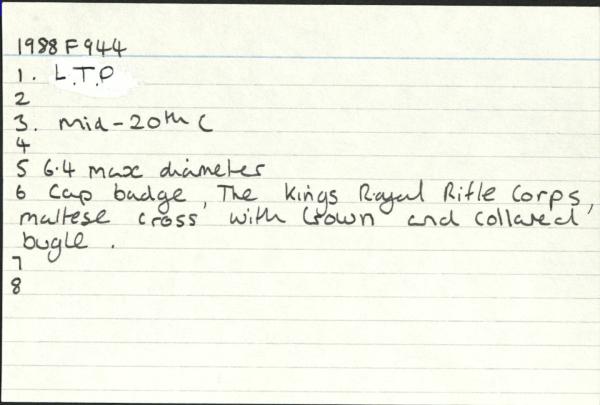 1988 F 944
1. L.T.P
2
3. Mid-20th C
4
5 6.4 max diameter
6 Cap badge, The Kings Royal Rifle Corps,
maltese cross with Crown and collared
bugle.
7
8